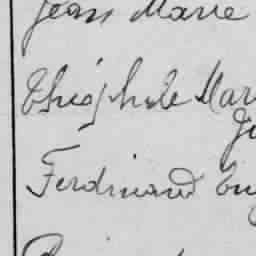 Jean Marie
Théophile Mar
Ferdinand Eug